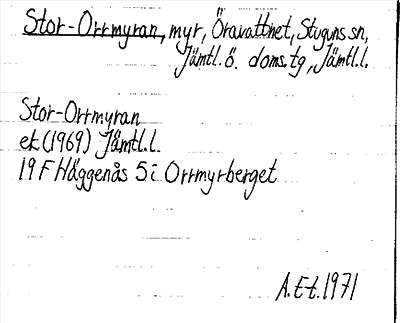 Stor-Orrmyran, myr, Öravattnet, Stuguns sn,
Jämtl. ö. doms.tg, Jämtl.l.
Stor-Orrmyran
ek (1969) Jämtl.l.
19 F Häggenås 5 i Orrmyrberget
A.Et.1971